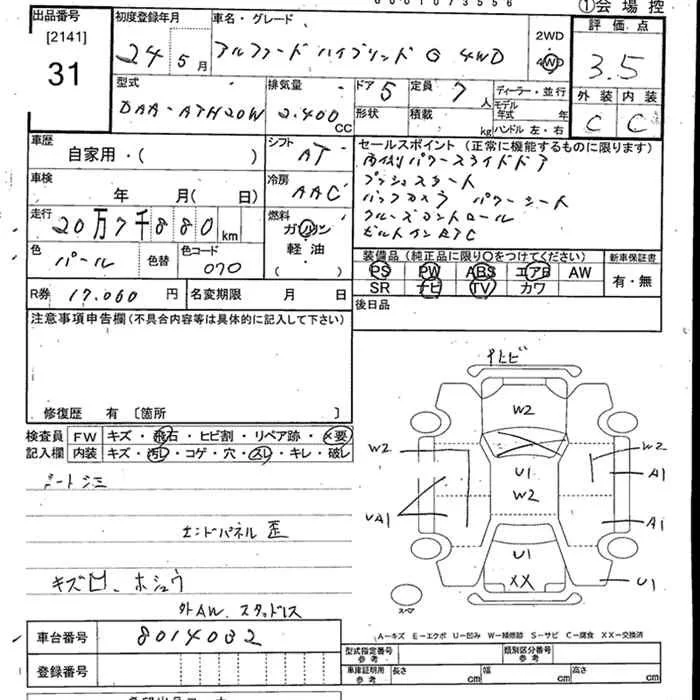 ①会場控
出品番号
[2141]
31
初度登録年月
24 5月
車名・グレード
アルファードハイブリッド G 4WD
2WD
4WD
評価点
3.5
外装 内装
C C
型式
DAA-ATH20W
排気量
2.400 CC
ドア 5
定員 7人
形状
積載 kg
ディーラー・並行
モデル年式 年
ハンドル 左・右
車歴
自家用・( )
シフト
AT
車検
年 月( 日)
冷房
AAC
走行
20万7千880km
燃料
ガソリン
軽油
( )
色
パール
色替
色コード
070
R券 17.060円
名変期限 月 日
セールスポイント (正常に機能するものに限ります)
両側パワースライドドア
プッシュスタート
バックカメラ パワーシート
クルーズコントロール
ビルトインETC
装備品 (純正品に限り○をつけてください)
新車保証書
PS PW ABS エアB AW
SR ナビ TV カワ
有・無
後日品
注意事項申告欄 (不具合内容等は具体的に記入して下さい)
修復歴 有 〔箇所 〕
検査員記入欄
FW キズ・飛石・ヒビ割・リペア跡・×要
内装 キズ・汚レ・コゲ・穴・スレ・キレ・破レ
シートシミ
エンドパネル 歪
キズ凹、ホシュウ
外AW、スタッドレス
トビ
W2
W2
W2
U1
W2
A1
UA1
A1
U1
XX
U1
スペア
A―キズ E―エクボ U―凹み W―補修跡 S―サビ C―腐食 XX―交換済
車台番号 8014032
登録番号
型式指定番号 参考
類別区分番号 参考
車庫証明用 参考 長さ cm 幅 cm 高さ cm